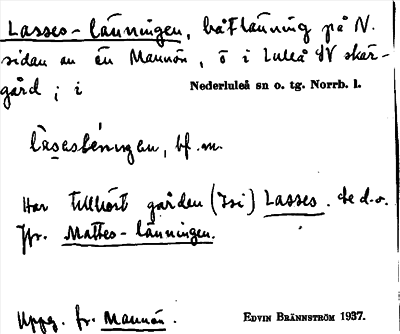 Lasses-länningen, båtlänning på N.
sidan av ön Mannön, ö i Luleå SV skär-
gård; i Nederluleå sn o. tg. Norrb. l.
bf. m.
Har tillhört gården (Isi) Lasses. Se d. o.
Jfr. Mattes-länningen.
Uppg. fr. Mannön. EDVIN BRÄNNSTRÖM 1937.